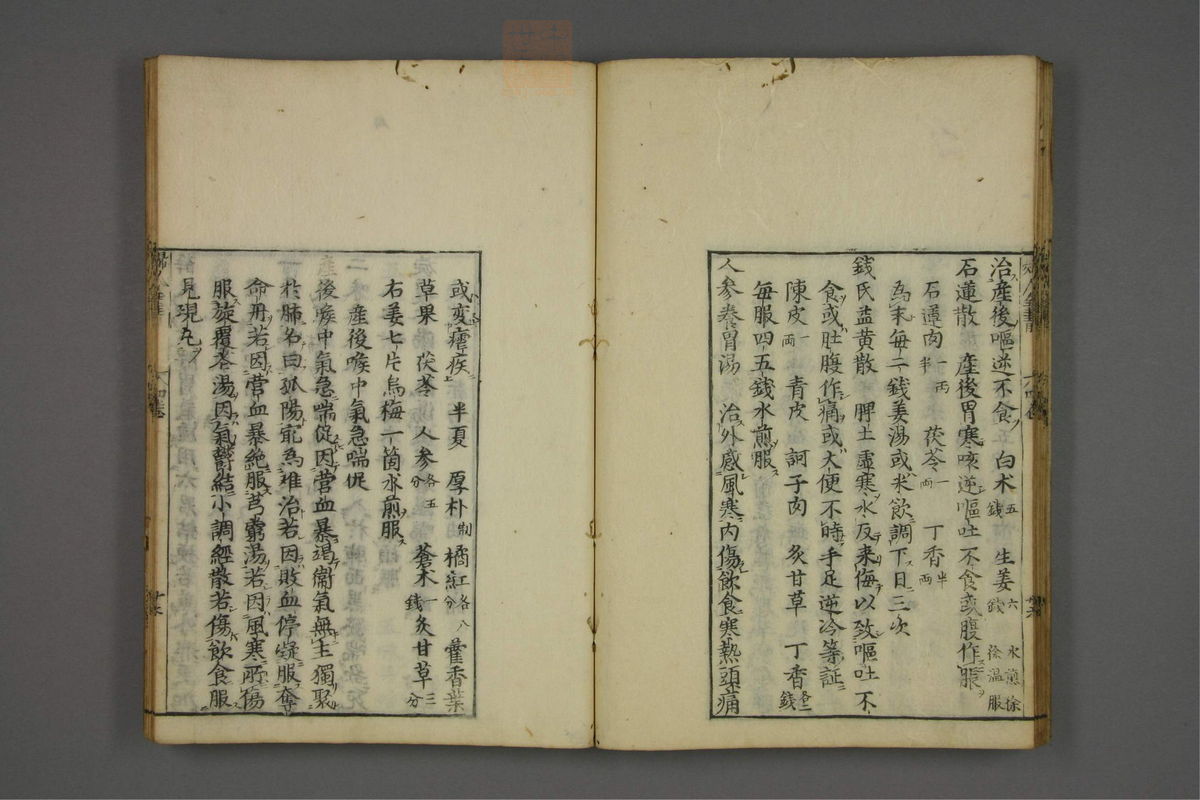 治産後嘔逆不食 白术五錢 生姜六錢 水煎徐徐温服
石蓮散 産後胃寒咳逆嘔吐不食或腹作脹
石蓮肉一両半 茯苓一両 丁香半両
為末每二錢姜湯或米飲調下日三次
錢氏益黄散 脾土虚寒水反来侮以致嘔吐不
食或肚腹作痛或大便不時手足逆冷等証
陳皮一両 青皮 訶子肉 炙甘草 丁香各二錢
每服四五錢水煎服
人参養胃湯 治外感風寒内傷飲食寒熱頭痛
或変瘧疾
半夏 厚朴制 橘紅各八分 藿香葉
草果 茯苓 人参各五分 蒼术一錢 炙甘草三分
右姜七片烏梅一箇水煎服
産後喉中氣急喘促
産後喉中氣急喘促因営血暴竭衛氣無主獨聚
於肺名曰孤陽宼為难治若因敗血停凝服奪
命丹若因営血暴絶服芎藭湯若因風寒所傷
服旋覆花湯因氣欝結小調經散若傷飲食服
見晛丸